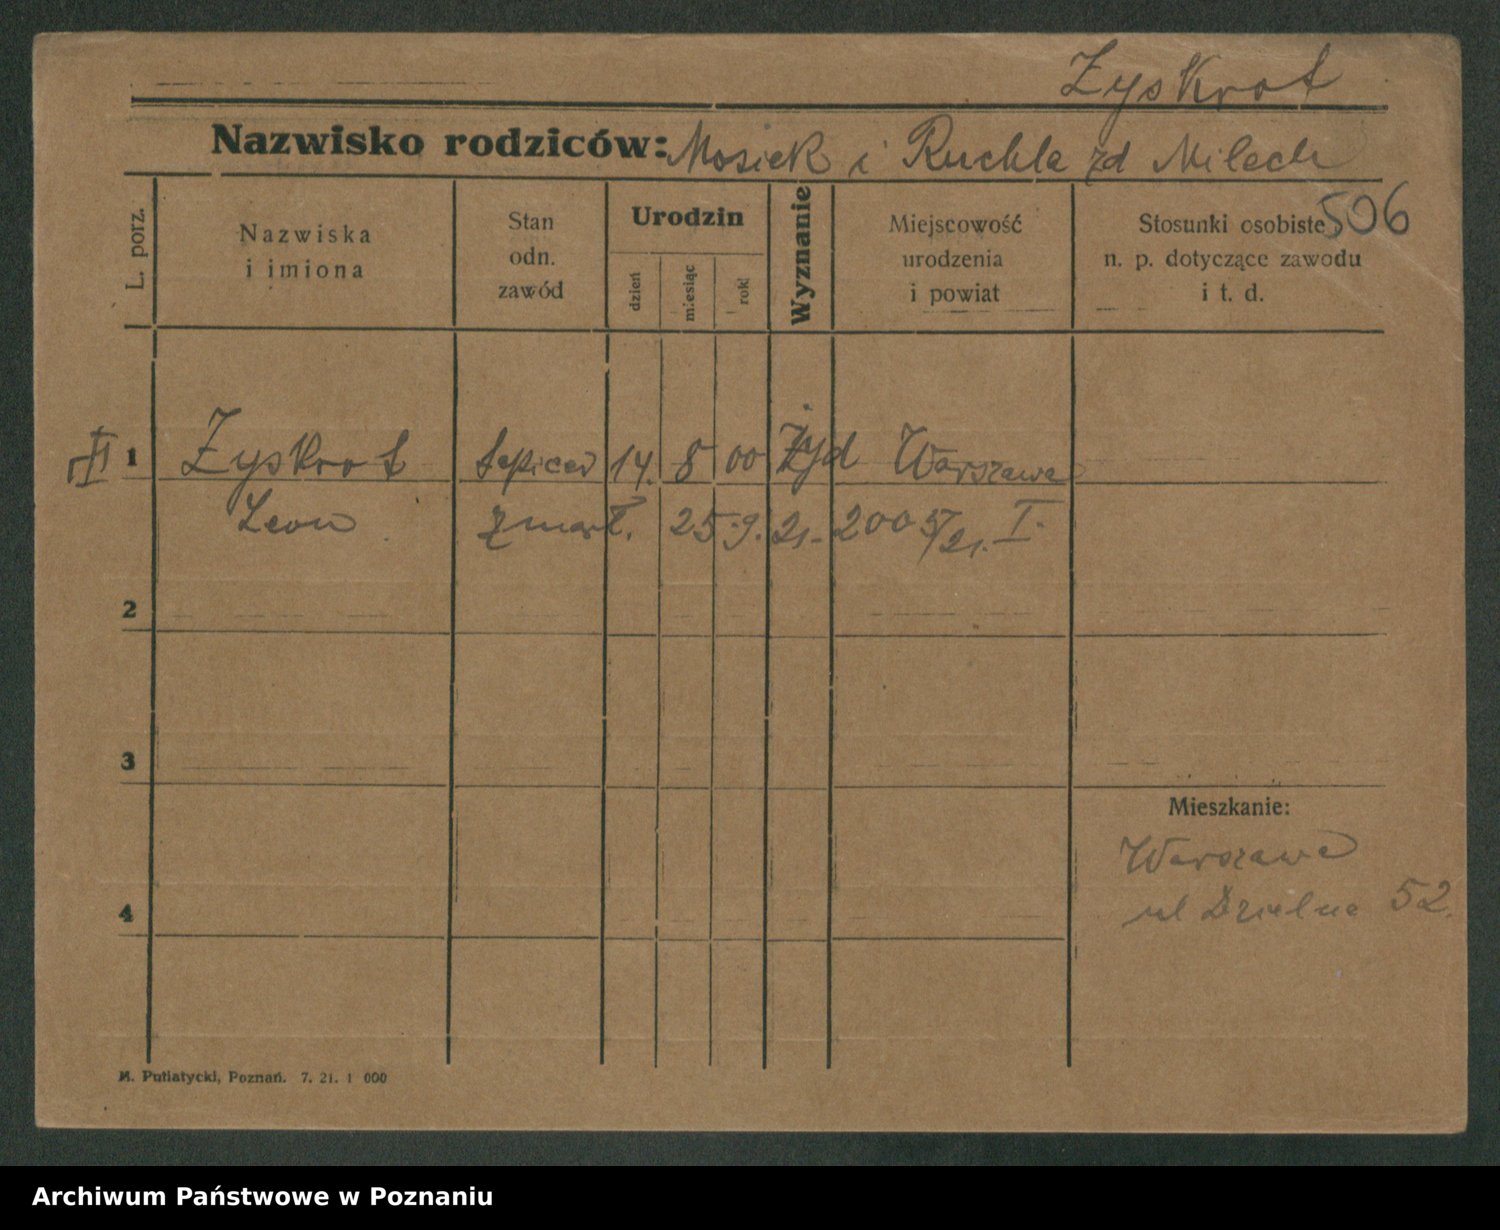 Zyskrot
Nazwisko rodziców: Mosiek i Ruchla zd Milech
506
L. porz.
Nazwiska
i imiona
Stan
odn.
zawód
Urodzin
dzień
miesiąc
rok
Wyznanie
Miejscowość
urodzenia
i powiat
Stosunki osobiste
n. p. dotyczące zawodu
i t. d.
II 1 Zyskrot tapicer 14. 8 00 Żyd Warszawa
Leon zmarł. 25.9.21. 2005/21. I.
2
3
Mieszkanie:
Warszawa
ul Dzielna 52.
4
M. Putiatycki, Poznań. 7. 21. 1 000
Archiwum Państwowe w Poznaniu